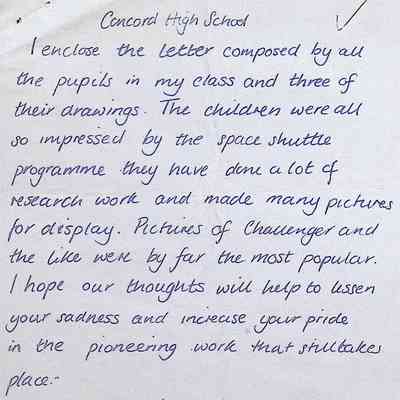 Concord High School
I enclose the letter composed by all
the pupils in my class and three of
their drawings. The children were all
so impressed by the space shuttle
programme they have done a lot of
research work and made many pictures
for display. Pictures of Challenger and
the like were by far the most popular.
I hope our thoughts will help to lessen
your sadness and increase your pride
in the pioneering work that still takes
place:-